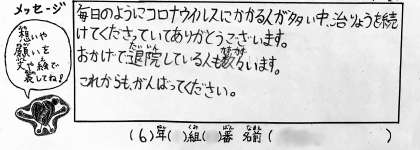 メッセージ
想いや
願いを
文や絵で
表してね!
毎日のようにコロナウイルスにかかる人が多い中、治りょうを続
けてくださっていてありがとうございます。
おかげで退院している人も数々います。
これからも、がんばってください。
(6)年( )組( )番 名前( )